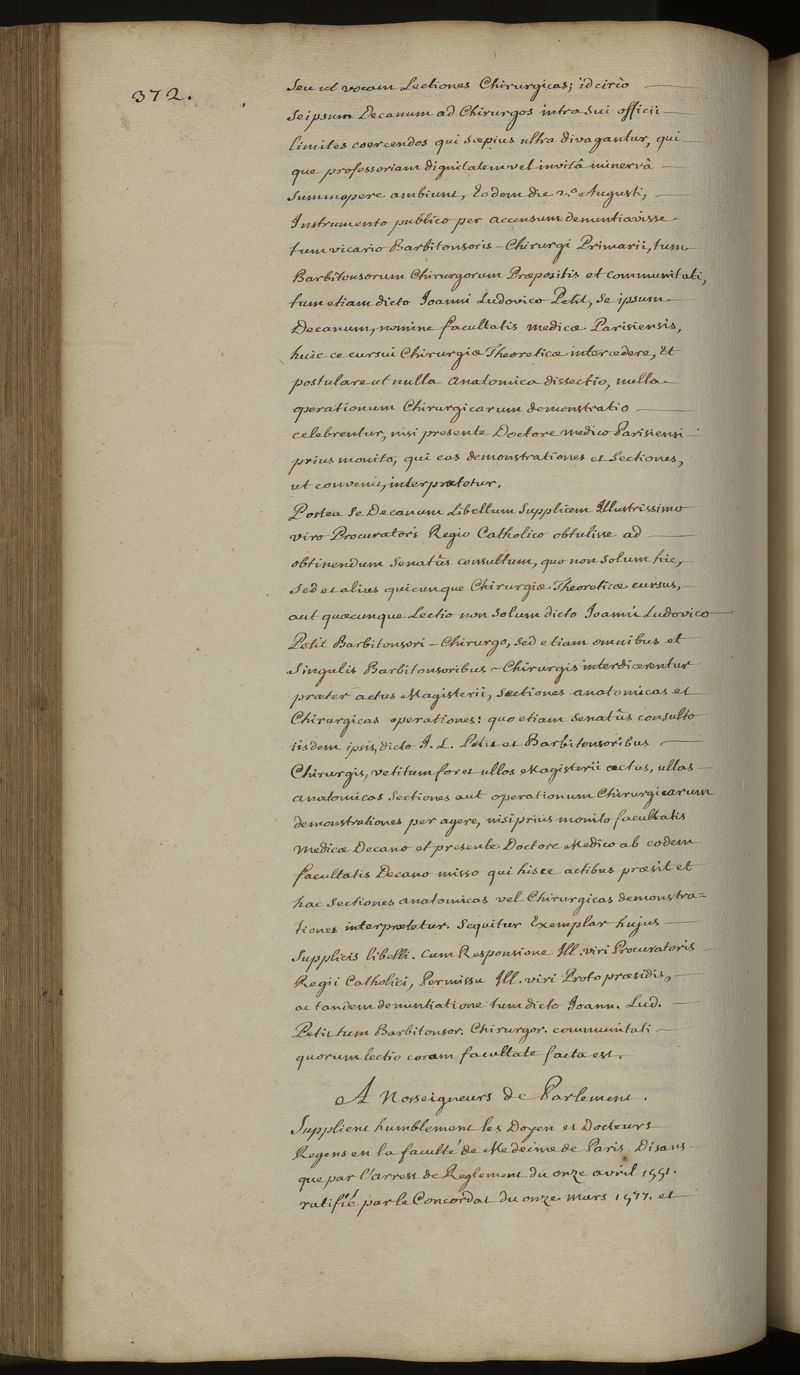 372.
Seu ut vocam Lectiones Chirurgicas; idcirco
Seipsum Decanum ad Chirurgos intra Sui officii
limites coercendos qui Sæpius ultra divagantur, qui
que professoriam dignitatem vel invitâ minervâ
Summopere ambiunt, Eodem die 2.º Augusti,
Instrumento publico per accensum denuntiavisse
tum vicario Barbitonsoris - Chirurgi Primarii, tum
Barbitonsorum Chirurgorum Præpositis et communitati,
tum etiam dicto Joanni Ludovico Petit, Se ipsum
Decanum, nomine facultatis medicæ Parisiensis,
huic ce cursui Chirurgiæ Theoreticæ intercedere, Et
postulare ut nulla anatomica dissectio, nulla
operationum Chirurgicarum demonstratio
celebrentur, nisi presente Doctore medico Parisiensi
prius monito, qui eas demonstrationes et Sectiones,
ut convenit, interpretetur.
Postea Se Decanum Libellum Supplicem Illustrissimo
viro Procuratori Regio Catholico obtulisse ad
obtinendum Senatûs consultum, quo non Solum hic,
Sed et alius quicunque Chirurgiæ Theoreticæ cursus,
aut quæcunque Lectio non Solum dicto Joanni Ludovico
Petit Barbitonsori - Chirurgo, Sed etiam omnibus et
Singulis Barbitonsoribus - Chirurgis interdicerentur
præter actus Magisterii, Sectiones anatomicas et
Chirurgicas operationes: quo etiam Senatûs consulto
iisdem ipsis, dicto J. L. Petit et Barbitonsoribus
Chirurgis, vetitum foret ullos Magisterii actus, ullas
anatomicas Sectiones aut operationum Chirurgicarum
demonstrationes per agere, nisi prius monito facultatis
Medicæ Decano et presente Doctore Medico ab eodem
facultatis Decano misso qui hisce actibus præsit et
has Sectiones anatomicas vel Chirurgicas demonstra=
tiones interpretetur. Sequitur Exemplar hujus
Supplicis libelli. Cum Responsione Ill. viri Procuratoris
Regii Catholici, Permissu Ill. viri Protopræsidis,
ac tandem denuntiatione tum dicto Joann. Lud.
Petit tum Barbitonsor. Chirurgor. communitati
quorum lectio coram facultate facta est.
A Nosseigneurs de Parlement.
Supplient humblement les Doyen et Docteurs
Regens en la faculté de Medecine de Paris Disans
que par l'arrest de Reglement du onze avril 1551.
ratifié par le Concordat du onze mars 1577. et